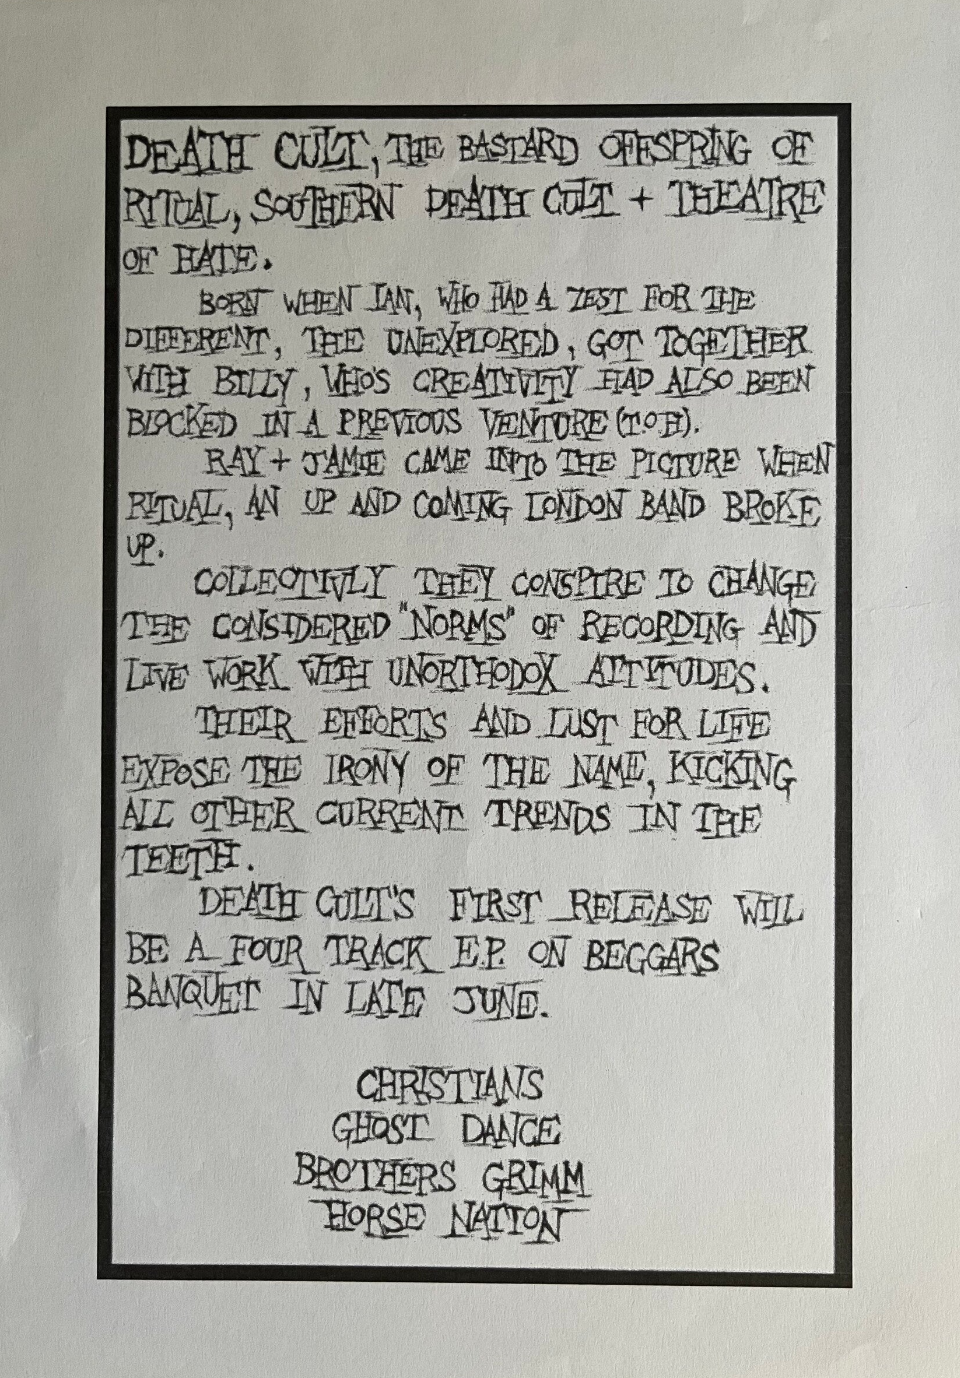 DEATH CULT, THE BASTARD OFFSPRING OF
RITUAL, SOUTHERN DEATH CULT + THEATRE
OF HATE.
BORN WHEN IAN, WHO HAD A ZEST FOR THE
DIFFERENT, THE UNEXPLORED, GOT TOGETHER
WITH BILLY, WHO'S CREATIVITY HAD ALSO BEEN
BLOCKED IN A PREVIOUS VENTURE (T.O.H).
RAY + JAMIE CAME INTO THE PICTURE WHEN
RITUAL, AN UP AND COMING LONDON BAND BROKE
UP.
COLLECTIVLY THEY CONSPIRE TO CHANGE
THE CONSIDERED "NORMS" OF RECORDING AND
LIVE WORK WITH UNORTHODOX ATTITUDES.
THEIR EFFORTS AND LUST FOR LIFE
EXPOSE THE IRONY OF THE NAME, KICKING
ALL OTHER CURRENT TRENDS IN THE
TEETH.
DEATH CULT'S FIRST RELEASE WILL
BE A FOUR TRACK E.P. ON BEGGARS
BANQUET IN LATE JUNE.
CHRISTIANS
GHOST DANCE
BROTHERS GRIMM
HORSE NATION